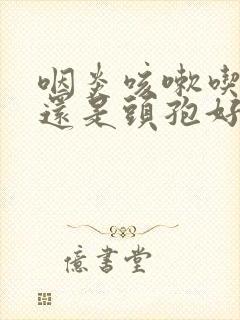 咽炎咳嗽喫
還是頭孢好
億書堂